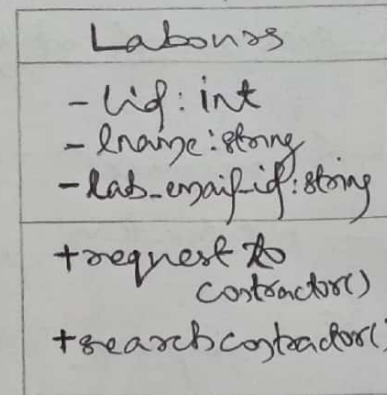 Labours
- lid: int
- lname: string
- lab_email_id: string
+ request to
contractor()
+ search contractor()